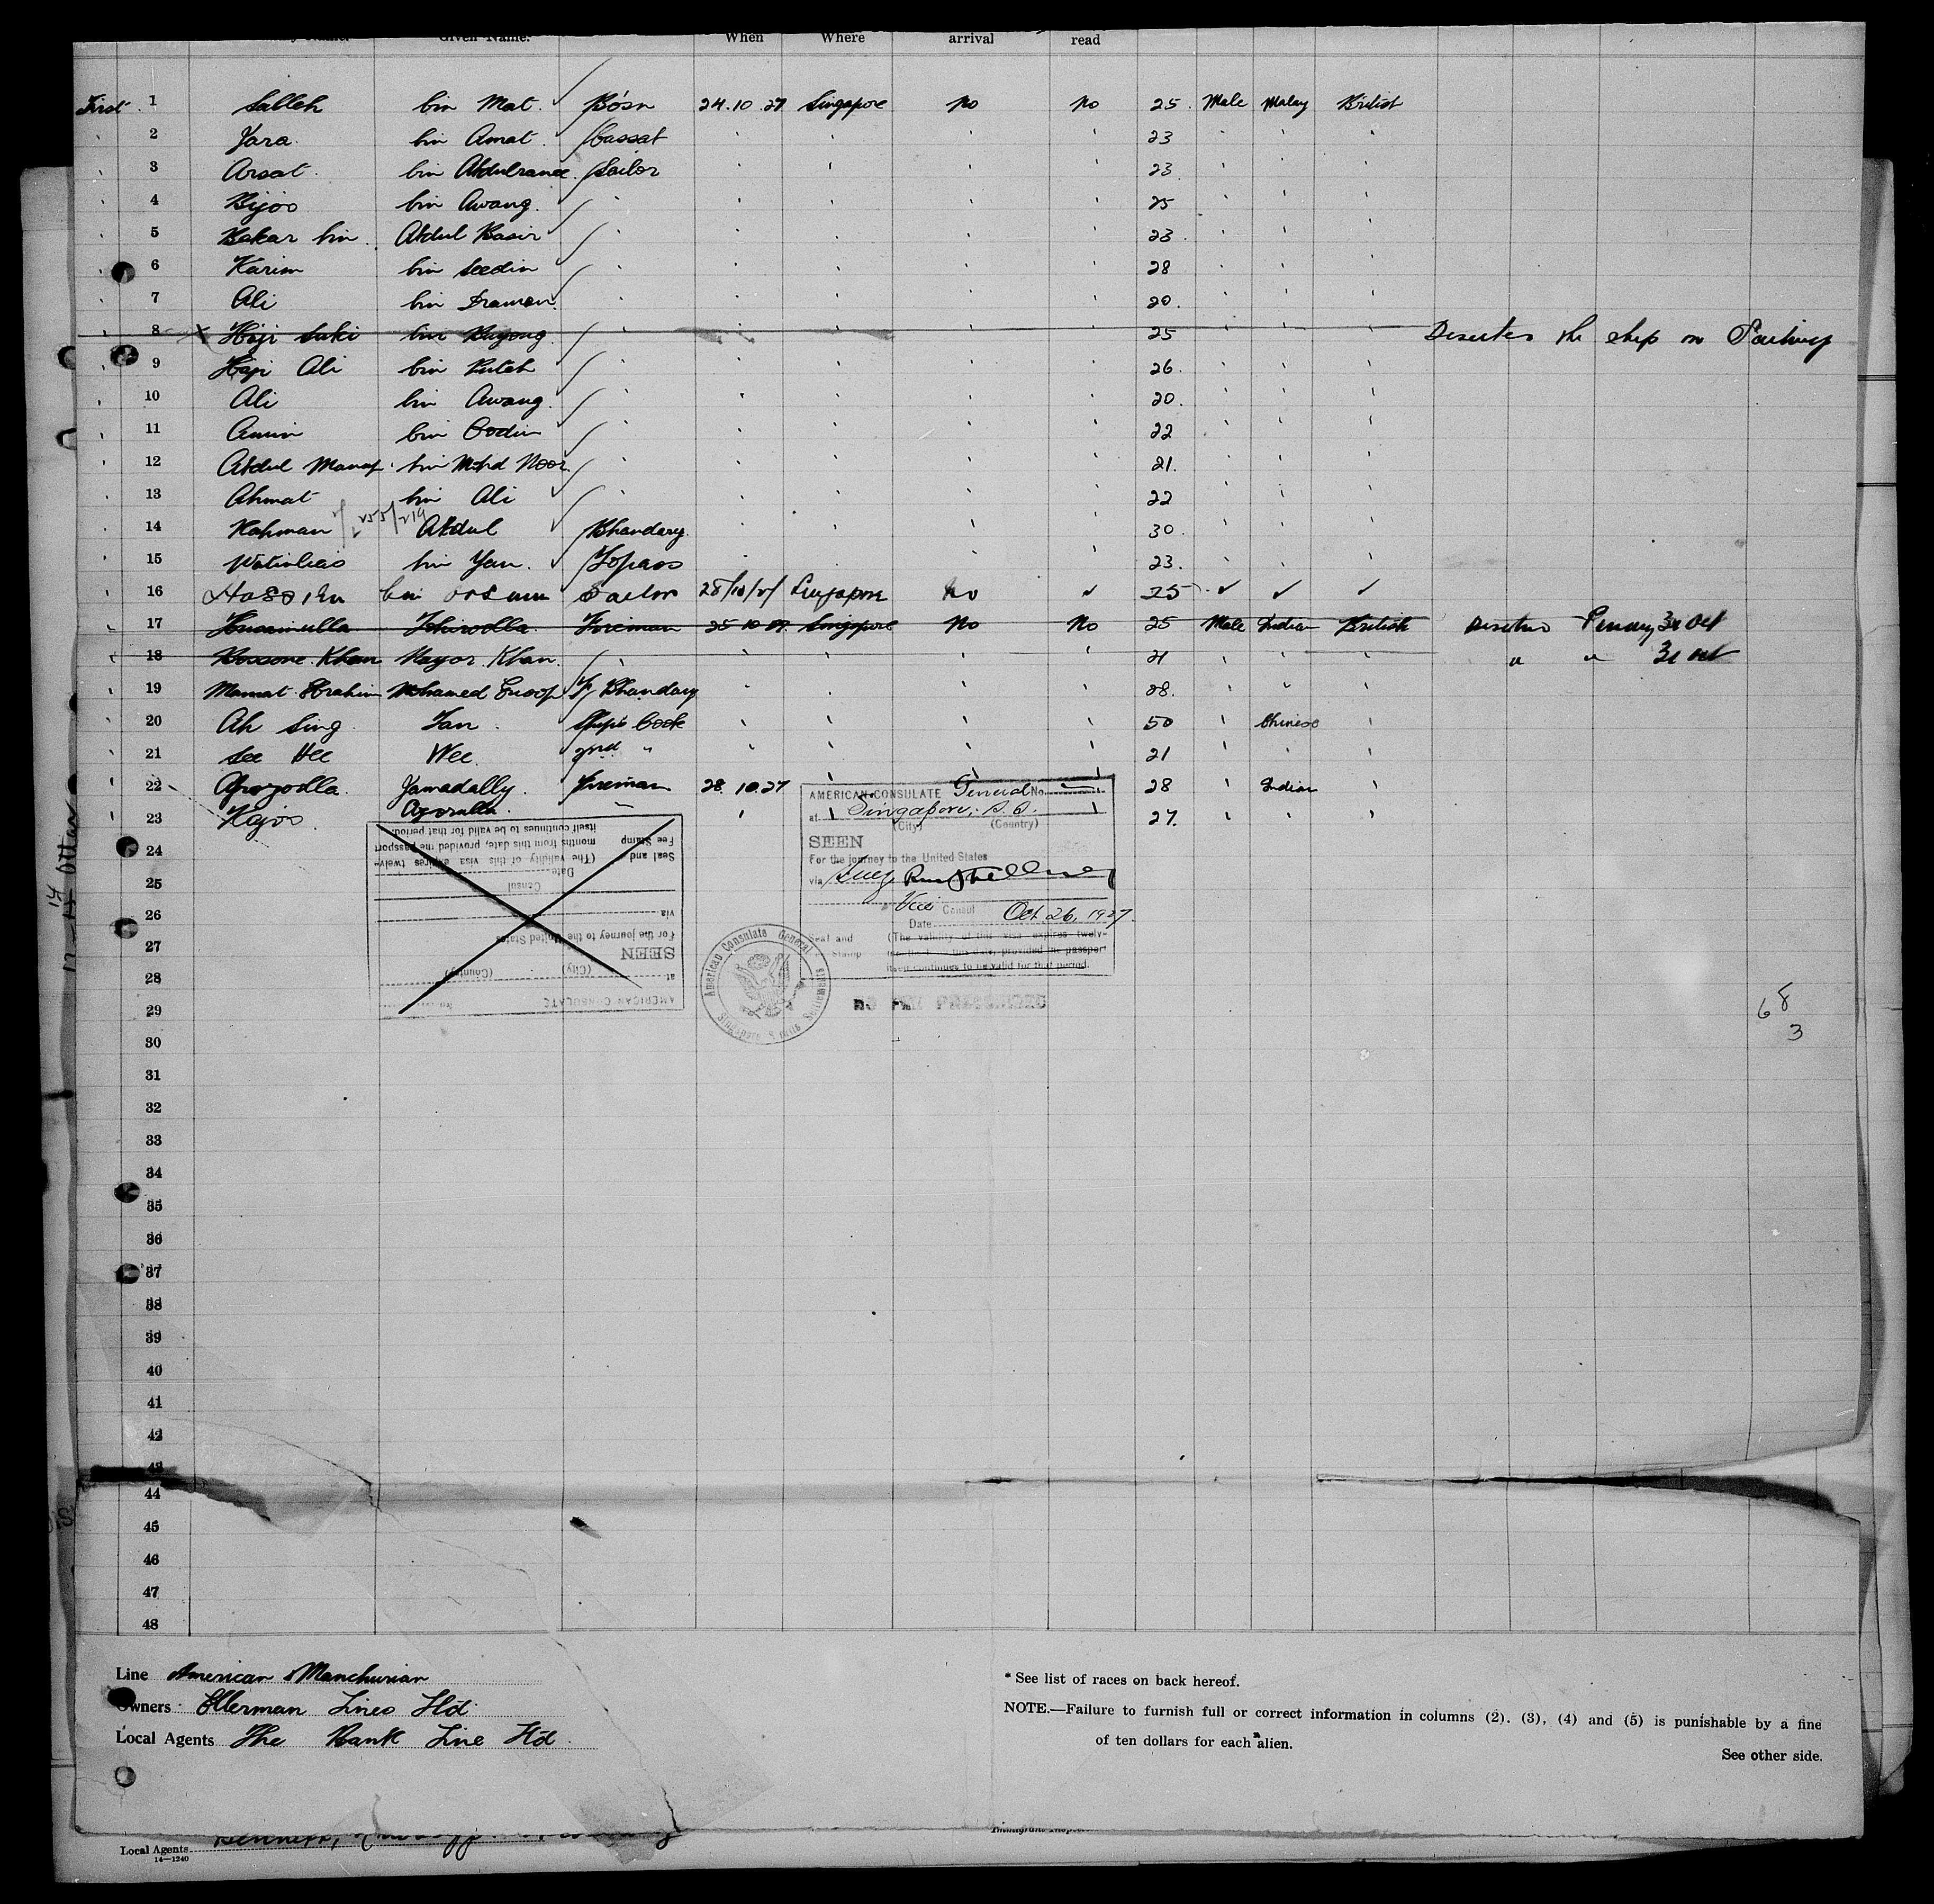 Given Name. When Where arrival read
First 1 Salleh bin Mat. Bosn 24.10.27 Singapore No No 25. Male Malay British
' 2 Jara. bin Amat. Cassat ' ' ' ' 23 ' ' '
' 3 Arsat. Sailor ' ' ' ' 23. ' ' '
' 4 Bijoo bin Awang. ' ' ' ' ' 25 ' ' '
' 5 Bakar bin. Abdul Basir ' ' ' ' ' 23. ' ' '
' 6 Karim bin Seedin ' ' ' ' ' 28 ' ' '
' 7 Ali bin Draman. ' ' ' ' ' 20. ' ' '
' 8 X Haji Suki bin Buyong. ' ' ' ' ' 25 ' ' ' the ship on Sailing
' 9 Haji Ali bin Puteh ' ' ' ' ' 26. ' ' '
' 10 Ali bin Awang. ' ' ' ' ' 20. ' ' '
' 11 Amin bin Oodin ' ' ' ' ' 22 ' ' '
' 12 Abdul Manaf. bin Mohd Noor. ' ' ' ' ' 21. ' ' '
' 13 Ahmat bin Ali ' ' ' ' ' 22 ' ' '
' 14 Rahman Abdul Bhandary. ' ' ' ' 30. ' ' '
' 15 bin Yan. Topass ' ' ' ' 23. ' '
16 bin Sailor Singapore No ✓ 25 ✓ ✓ ✓
' 17 Foreman 25 10 27. Singapore No No 25 Male Indian British 31 Oct
' 18 Khan Khan. ' ' ' ' ' 21 ' ' ' " " 31 Oct
' 19 Mamat Ebrahim Mohamed F. Bhandary ' ' ' ' 28. ' " '
' 20 Ah Sing. Tan. Ship's Cook ' ' ' ' 50 ' Chinese '
' 21 See Hee Wee. 2nd " ' ' ' ' 21 ' ' '
' 22 Yamadally. Fireman 28.10.27 ' ' ' 28 ' Indian '
' 23 ' ' ' 27. ' ' '
24
25
26
27
28
29
30
31
32
33
34
35
36
37
38
39
40
41
42
43
44
45
46
47
48
AMERICAN CONSULATE General No.
at Singapore, S.S.
(City) (Country)
SEEN
For the journey to the United States
via Suez
Vice Consul
Date Oct. 26, 1927.
Seal and Stamp (The validity of this visa expires twelve months from this date, provided the passport
itself continues to be valid for that period.
American Consulate General
Singapore Straits Settlements
NO FEE PRESCRIBED
AMERICAN CONSULATE No.
at
(City) (Country)
SEEN
For the journey to the United States
via
Consul
Date
Seal and Fee Stamp (The validity of this visa expires twelve months from this date, provided the passport
itself continues to be valid for that period.
68
3
Line American & Manchurian
Owners Ellerman Lines Ltd
Local Agents The Bank Line Ltd.
* See list of races on back hereof.
NOTE.—Failure to furnish full or correct information in columns (2). (3), (4) and (5) is punishable by a fine
of ten dollars for each alien.
See other side.
Local Agents
14—1240